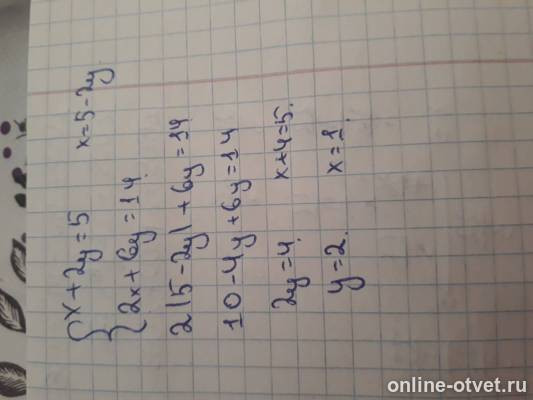 { x + 2y = 5    x = 5 - 2y
{ 2x + 6y = 14
2(5 - 2y) + 6y = 14
10 - 4y + 6y = 14
2y = 4.    x + 4 = 5.
y = 2.    x = 1.
online-otvet.ru